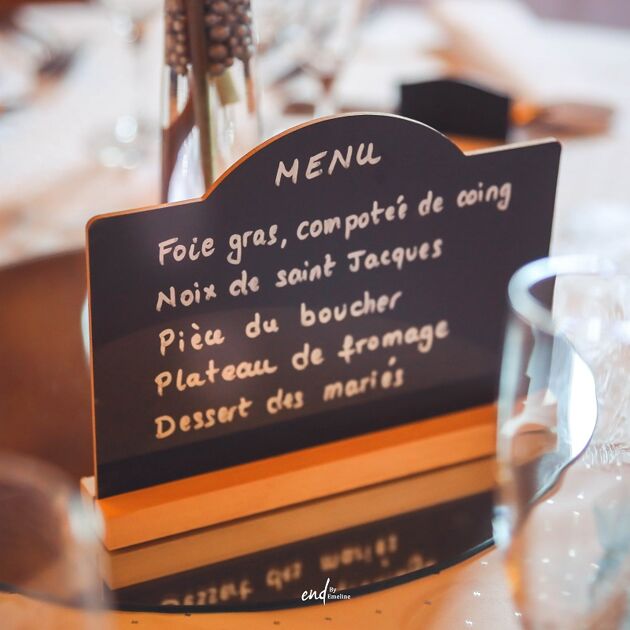 MENU
Foie gras, compoteé de coing
Noix de saint Jacques
Pièce du boucher
Plateau de fromage
Dessert des mariés
end By
Emeline